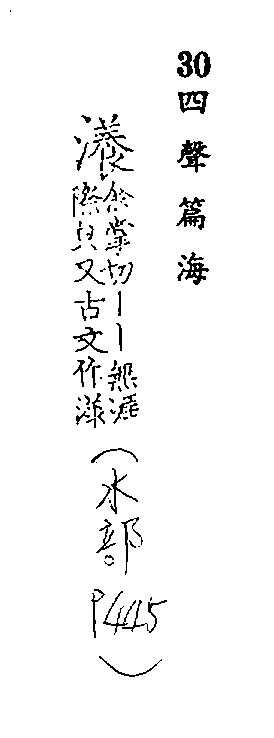 30四聲篇海
瀁
余掌切丨丨無涯
際皃又古文作漾
(水部。P445)